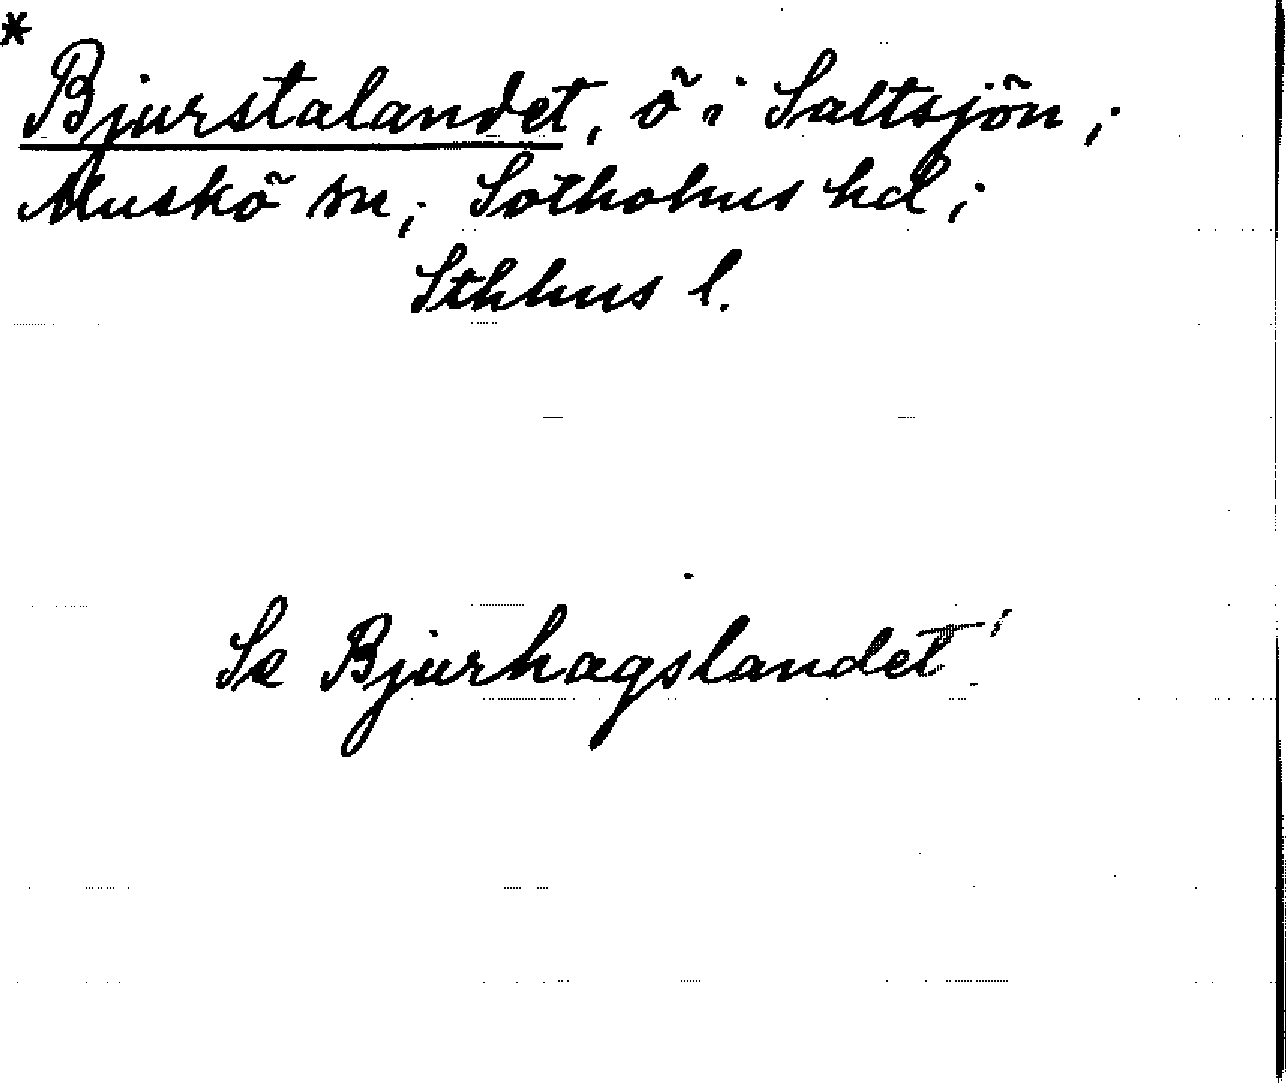 *
Bjurstalandet, ö i Saltsjön;
Muskö sn; Sotholms hd;
Sthlms l.
Se Bjurhagslandet!